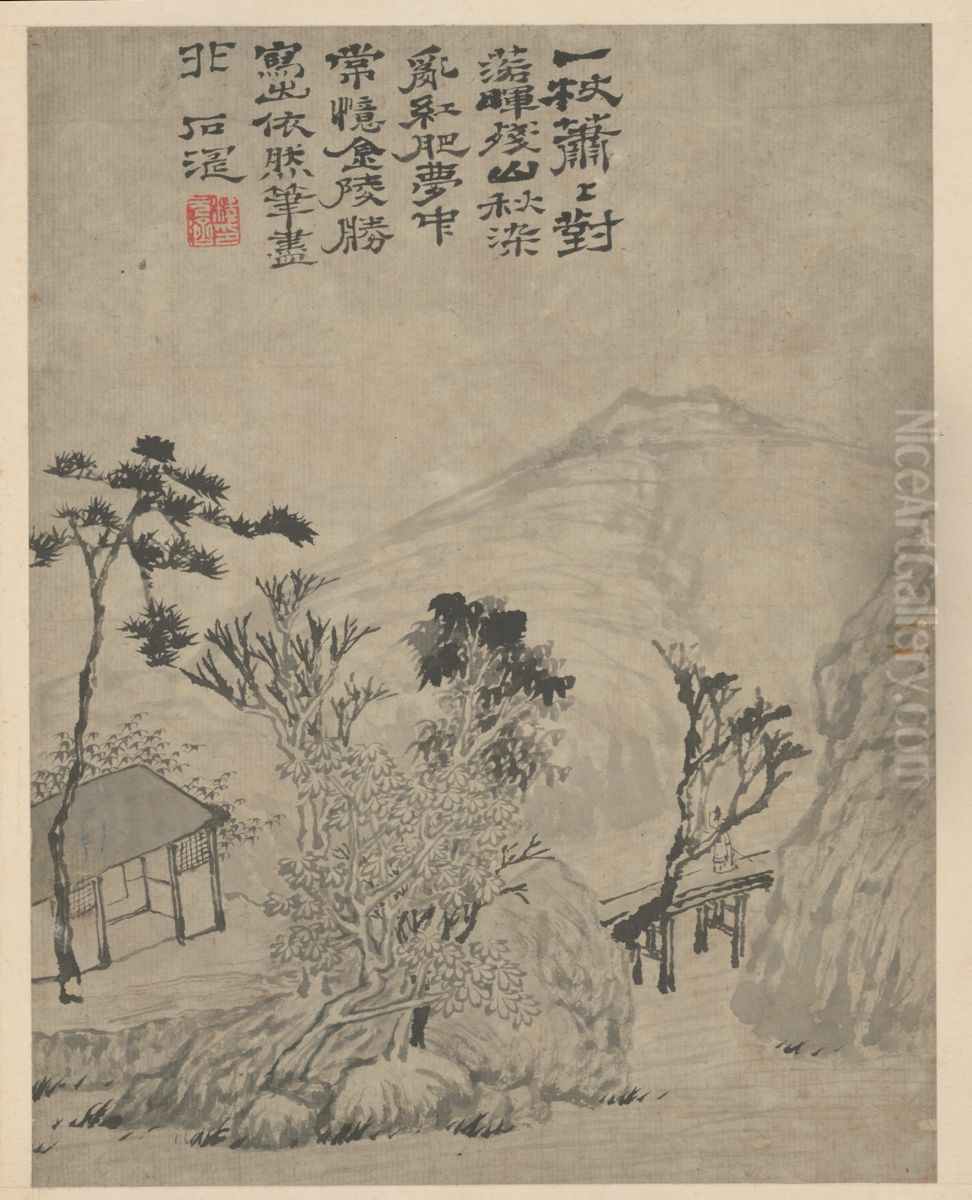 一枝蕭〻對
落暉殘山秋染
亂紅肥夢中
常憶金陵勝
寫出依然筆盡
非 石濤
NiceArtGallery.com